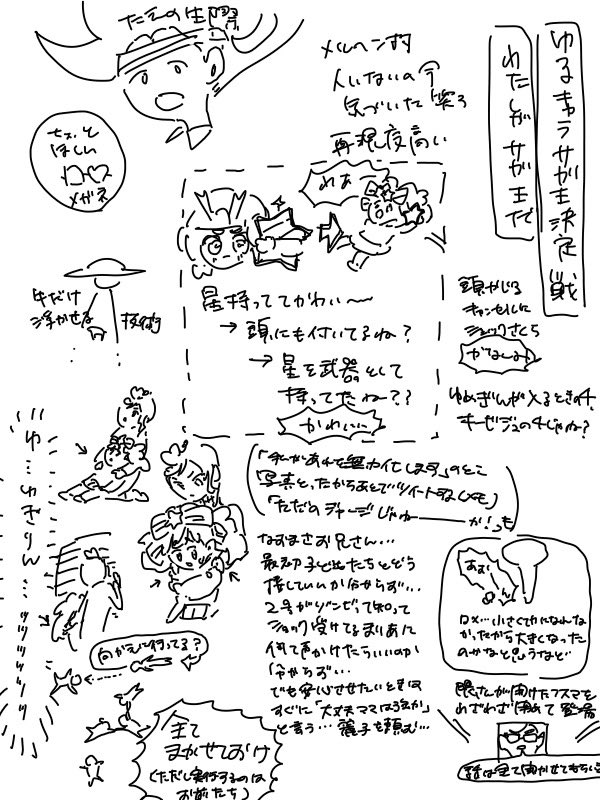 ゆるキャラサガ王決定戦
わたしがサガ王だ
メルヘン村
人いないの今
気づいた 笑う
再現度高い
ちょっと
ほしい
メガネ
牛だけ
浮かせる
技術
れあ
星持っててかわい〜
→頭にも付いてるね?
→星を武器として
持ってたね??
かわいい
頭かじる
キャンセルに
ショックさくら
かなしみ
ゆめぎんが入るときの
ゆ…ゆぎりん…
「写真とったからあとでツイートするしも」
「ただのジャージじゃねーーーか!」も
なおまさお兄さん…
最初子供たちとどう
接していいか分からず…
2号がゾンビて知って
ショック受けてるまりあに
何て声かけたらいいのか
分からず…
でも安心させたいときは
すぐに「大丈夫ママは強か」
と言う…麗子を頼む…
向かえに行ってる?
全て
まかせておけ
(ただし実行するのは
お前たち)
ロメ…小さくてかになんな
かったから大きくなった
のかなと思うなど
わざわざ閉めて登場
話は全て聞かせてもらった